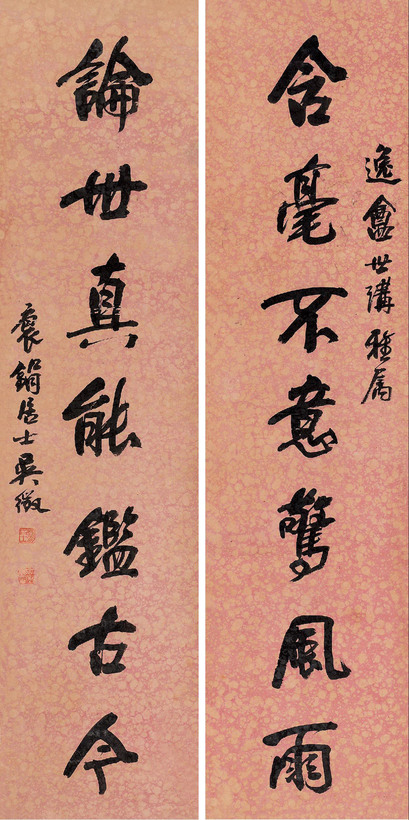 逸盦世講雅屬
含毫不意驚風雨
論世真能鑑古今
袌鋗居士吳徵